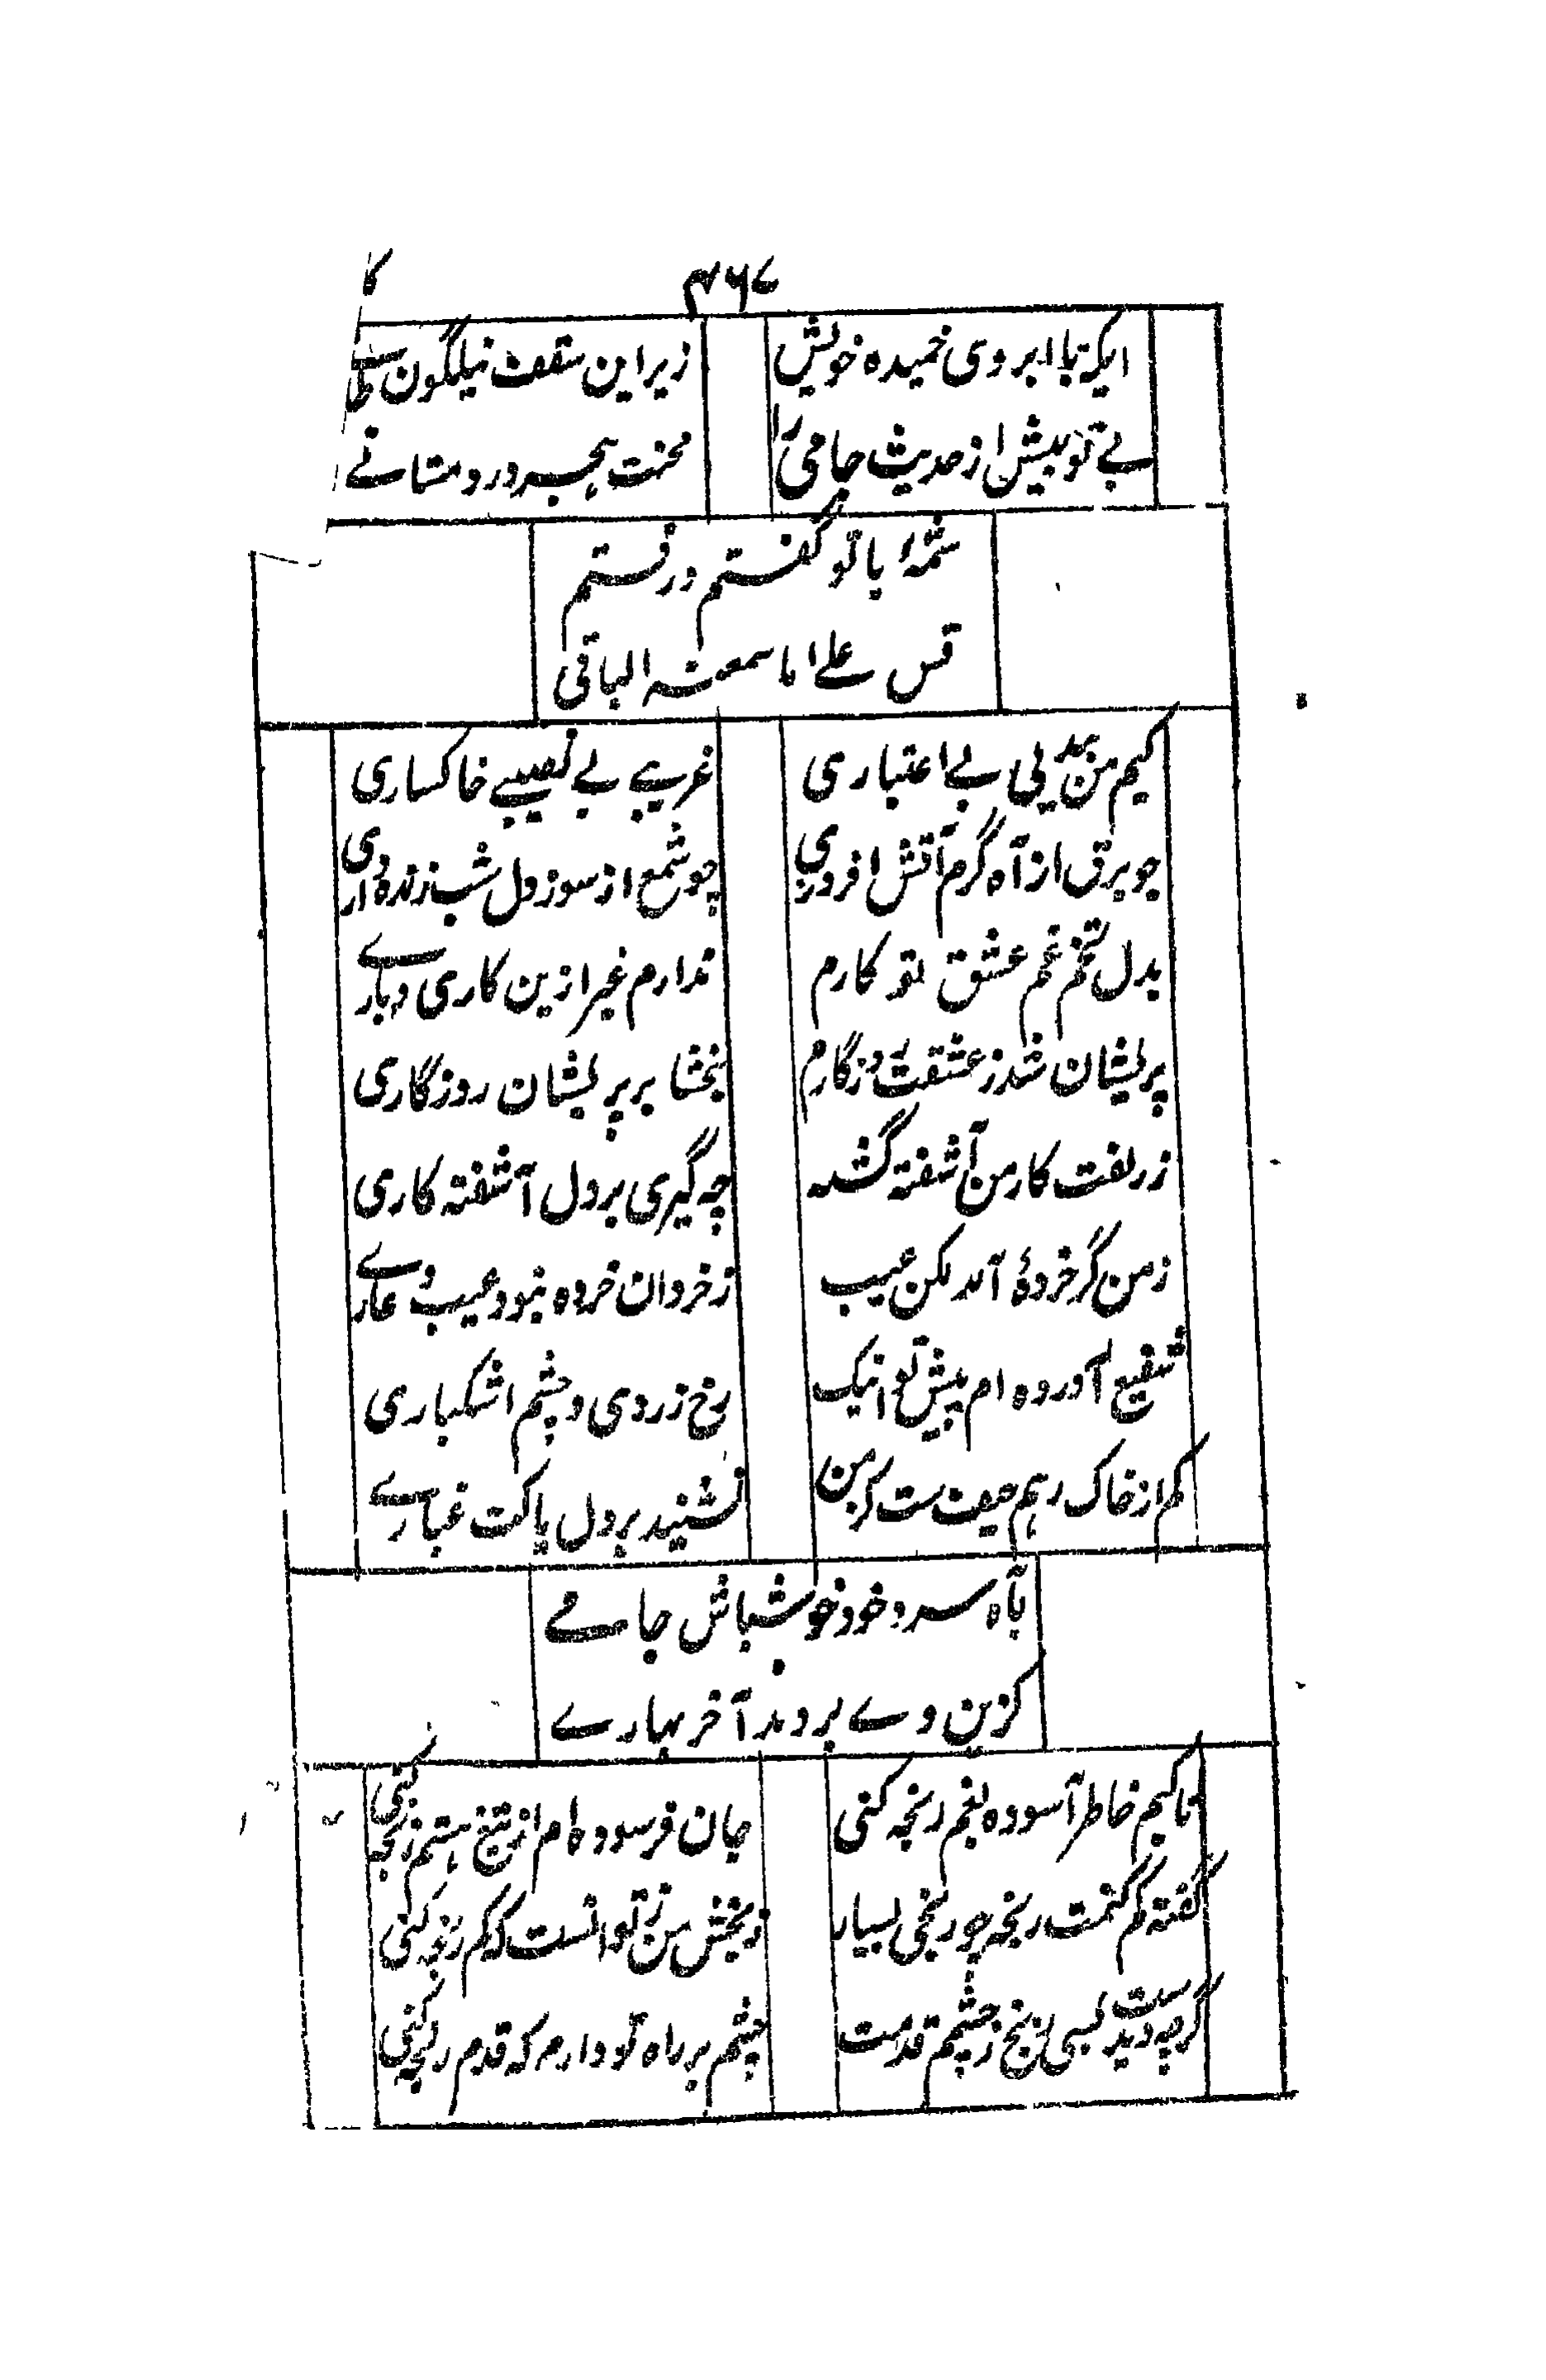 ۴۶۷
ایکه با ابروی خمیده خویش
زیر این سقف نیلگون طاقے
بے تو بیش از حدیث جامی را
محنت ہجر و درد مشتاقے
شمهٔ با تو گفتم و رفتم
قس علے ما سمعتہ الباقی
کیم من بیدلی بے اعتباری
غریبے بے نصیبے خاکساری
چو برق از آه گرم آتش افروزی
چو شمع از سوز دل شب زنده داری
بدل تخم غم عشق تو کارم
ندارم غیر ازین کاری و بارے
پریشان شد ز عشقت روزگارم
ببخشا بر پریشان روزگاری
ز زلفت کار من آشفته گشته
چه گیری بر دل آشفته کاری
ز من گر خردهٔ آمد مکن عیب
ز خردان خرده نبود عیب و عارے
شفیع آورده ام پیش تو اینک
رخ زردی و چشم اشکباری
کم از خاک رہم حیف ست کز من
نشیند بر دل پاکت غبارے
بآه سرد خود خوشباش جامے
کزین دے بر دمد آخر بہارے
تا کیم خاطر آسوده بغم رنجه کنی
جان فرسوده ام از تیغ ستم رنجه کنی
گفته کم کنمت رنجه چو رنجی بسیار
رنجش من ز تو انست که کم رنجه کنی
گرچه دیدست بسی رنج ز چشمم قدمت
چشم بر راه تو دارم که قدم رنجه کنی